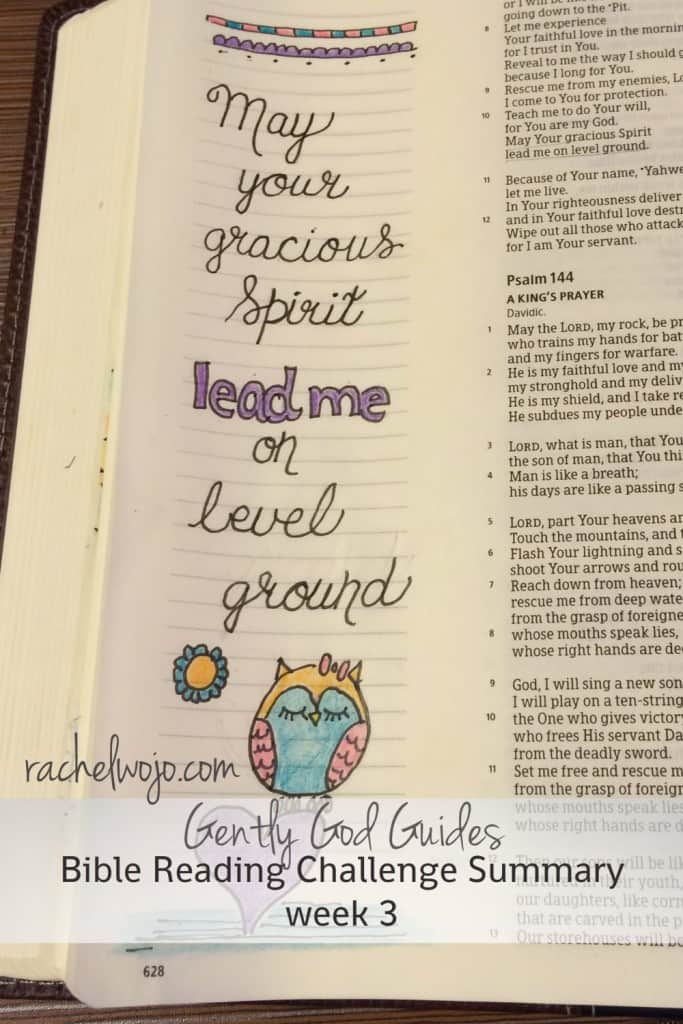 May
your
gracious
Spirit
lead me
on
level
ground
rachelwojo.com
Gently God Guides
Bible Reading Challenge Summary
week 3
628
going down to the *Pit.
8 Let me experience
Your faithful love in the mornin
for I trust in You.
Reveal to me the way I should g
because I long for You.
9 Rescue me from my enemies, Lo
I come to You for protection.
10 Teach me to do Your will,
for You are my God.
May Your gracious Spirit
lead me on level ground.
11 Because of Your name, *Yahwe
let me live.
In Your righteousness deliver
12 and in Your faithful love destr
Wipe out all those who attack
for I am Your servant.
Psalm 144
A KING'S PRAYER
Davidic.
1 May the LORD, my rock, be pr
who trains my hands for bat
and my fingers for warfare.
2 He is my faithful love and my
my stronghold and my deliv
He is my shield, and I take re
He subdues my people unde
3 LORD, what is man, that You
the son of man, that You thi
4 Man is like a breath;
his days are like a passing s
5 LORD, part Your heavens an
Touch the mountains, and t
6 Flash Your lightning and s
shoot Your arrows and rou
7 Reach down from heaven;
rescue me from deep wate
from the grasp of foreigne
8 whose mouths speak lies,
whose right hands are dec
9 God, I will sing a new son
I will play on a ten-string
10 the One who gives victory
who frees His servant Da
from the deadly sword.
11 Set me free and rescue m
from the grasp of foreign
whose mouths speak lies
whose right hands are d
12 Then our sons will be lik
nurtured in their youth,
our daughters, like corn
that are carved in the p
13 Our storehouses will be